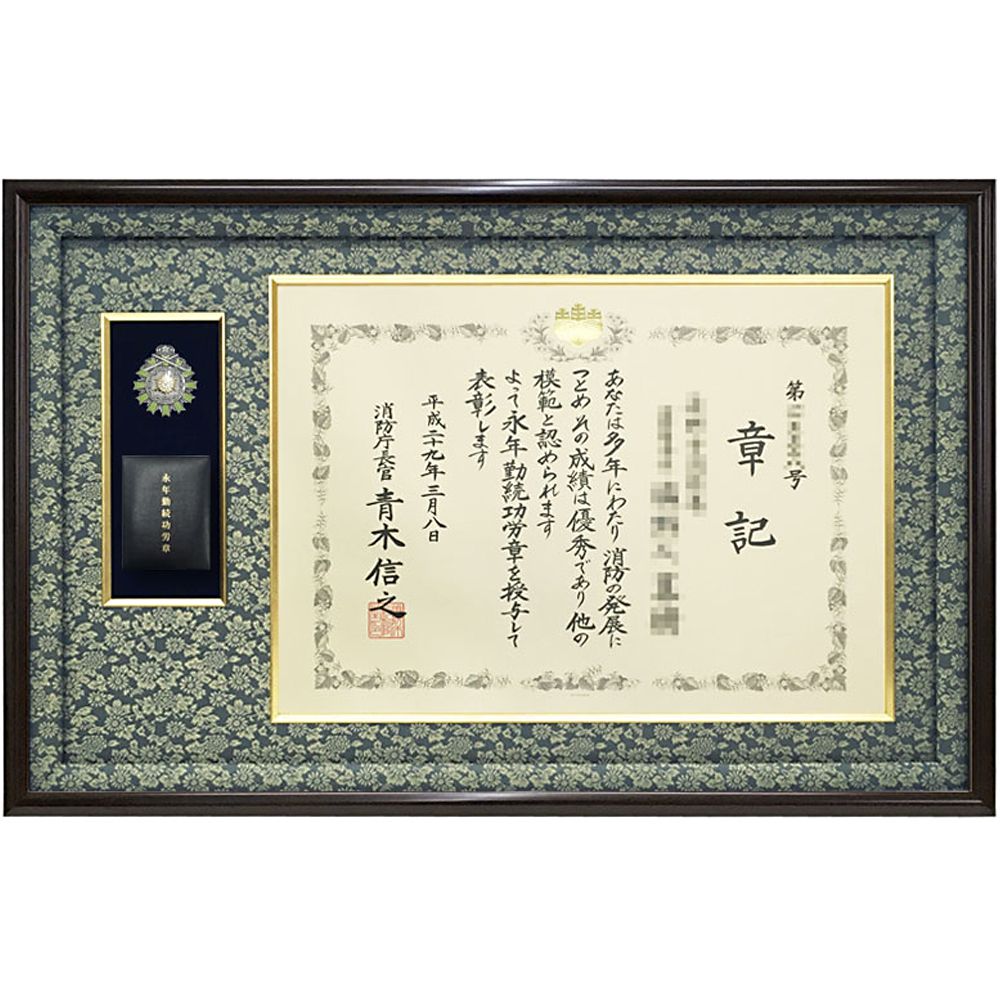 第 号
章記
あなたは多年にわたり 消防の発展に
つとめ その成績は優秀であり 他の
模範と認められます
よって永年勤続功労章を授与して
表彰します
平成二十九年三月八日
消防庁長官 青木信之
永年勤続功労章